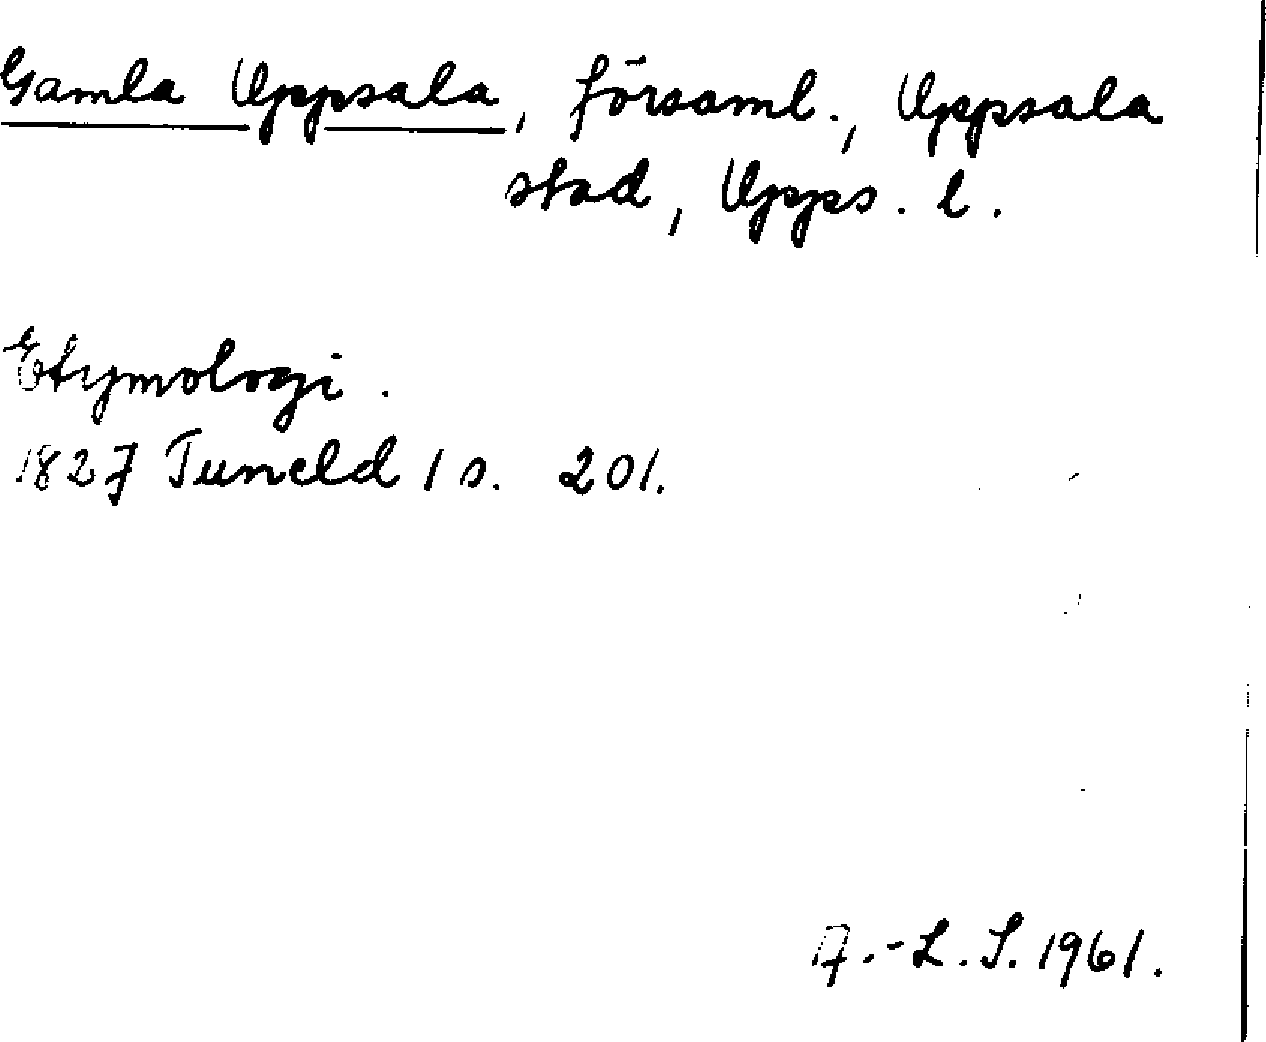 Gamla Uppsala, församl., Uppsala
stad, Upps. l.
Etymologi.
1827 Tuneld 1 s. 201.
A.-L. S. 1961.